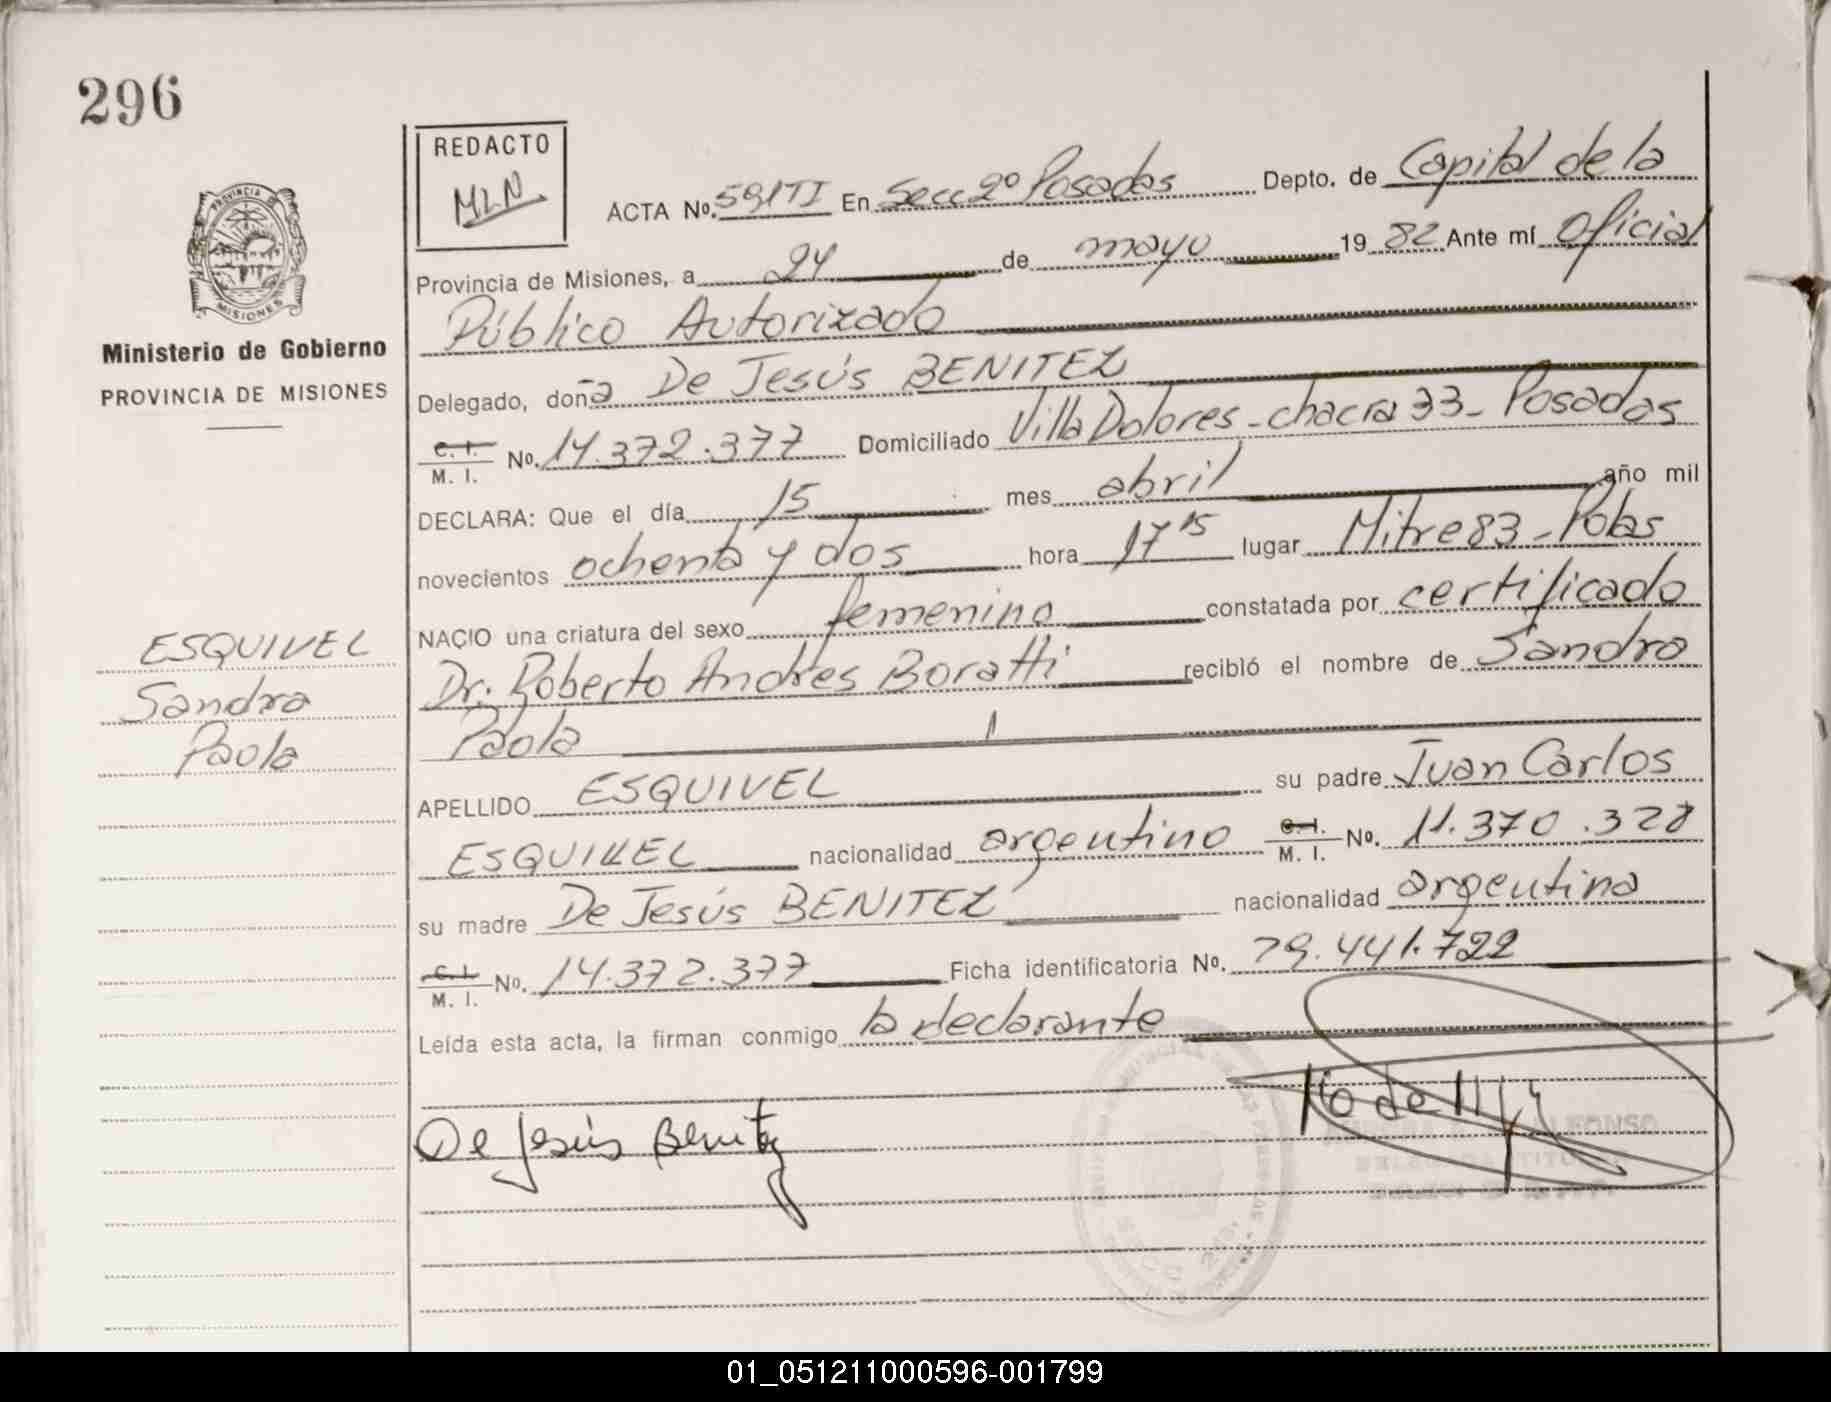 296
REDACTO
MLN
PROVINCIA
MISIONES
Ministerio de Gobierno
PROVINCIA DE MISIONES
ESQUIVEL
Sandra
Paola
ACTA No. 591TI En Secc 2º Posadas Depto. de Capital de la
Provincia de Misiones, a 24 de mayo 1982 Ante mí Oficial
Público Autorizado
Delegado, doña De Jesús BENITEZ
C. I. M. I. No. 14.372.377 Domiciliado Villa Dolores - chacra 33 - Posadas
DECLARA: Que el día 15 mes abril año mil
novecientos ochenta y dos hora 17 15 lugar Mitre 83 - Pdas
NACIO una criatura del sexo femenino constatada por certificado
Dr. Roberto Andres Boratti recibió el nombre de Sandra
Paola
APELLIDO ESQUIVEL su padre Juan Carlos
ESQUIVEL nacionalidad argentino C. I. M. I. No. 11.370.328
su madre De Jesús BENITEZ nacionalidad argentina
C. I. M. I. No. 14.372.377 Ficha identificatoria No. 29.441.722
Leída esta acta, la firman conmigo la declarante
De Jesús Benitez
ALFONSO
01_051211000596-001799